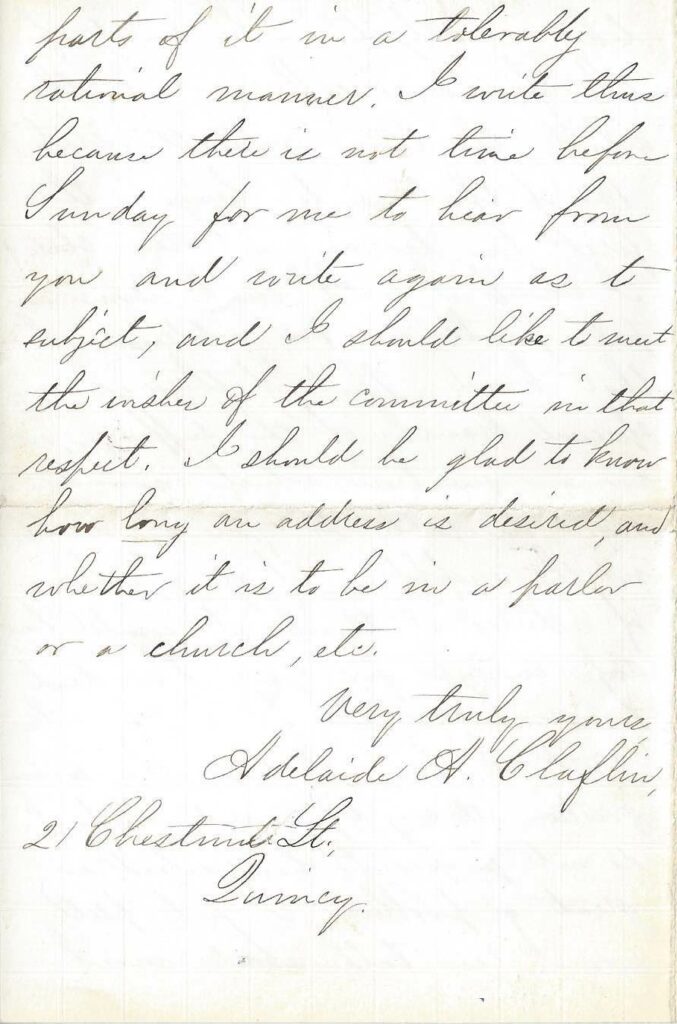 parts of it in a tolerably
rational manner. I write thus
because there is not time before
Sunday for me to hear from
you and write again as to
subject, and I should like to meet
the wishes of the committee in that
respect. I should be glad to know
how long an address is desired, and
whether it is to be in a parlor
or a church, etc.
Very truly yours,
Adelaide A. Claflin,
21 Chestnut St.,
Quincy.